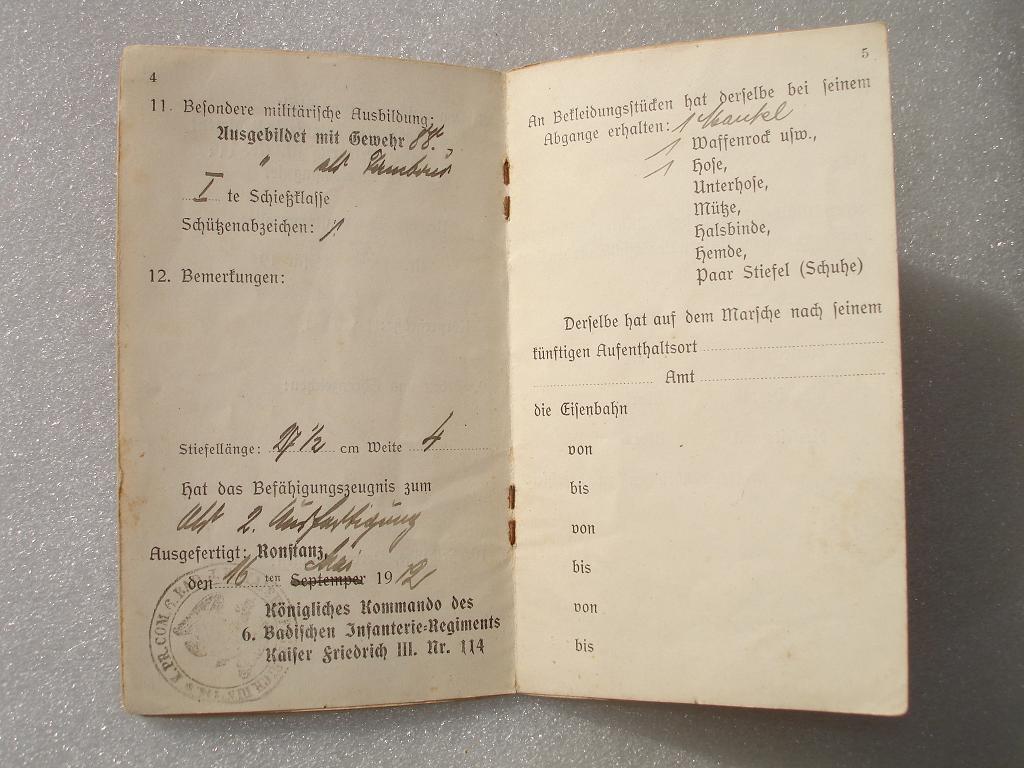 4
11. Besondere militärische Ausbildung:
Ausgebildet mit Gewehr 88.,
" als Tambour
I te Schießklasse
Schützenabzeichen: 1
12. Bemerkungen:
Stiefellänge: 27 1/2 cm Weite 4
Hat das Befähigungszeugnis zum
Als 2. Ausfertigung
Ausgefertigt: Konstanz,
Mai
den 16 ten September 1912
Königliches Kommando des
6. Badischen Infanterie-Regiments
Kaiser Friedrich III. Nr. 114
5
An Bekleidungsstücken hat derselbe bei seinem
Abgange erhalten: 1 Mantel
1 Waffenrock usw.,
1 Hose,
Unterhose,
Mütze,
Halsbinde,
Hemde,
Paar Stiefel (Schuhe)
Derselbe hat auf dem Marsche nach seinem
künftigen Aufenthaltsort
Amt
die Eisenbahn
von
bis
von
bis
von
bis